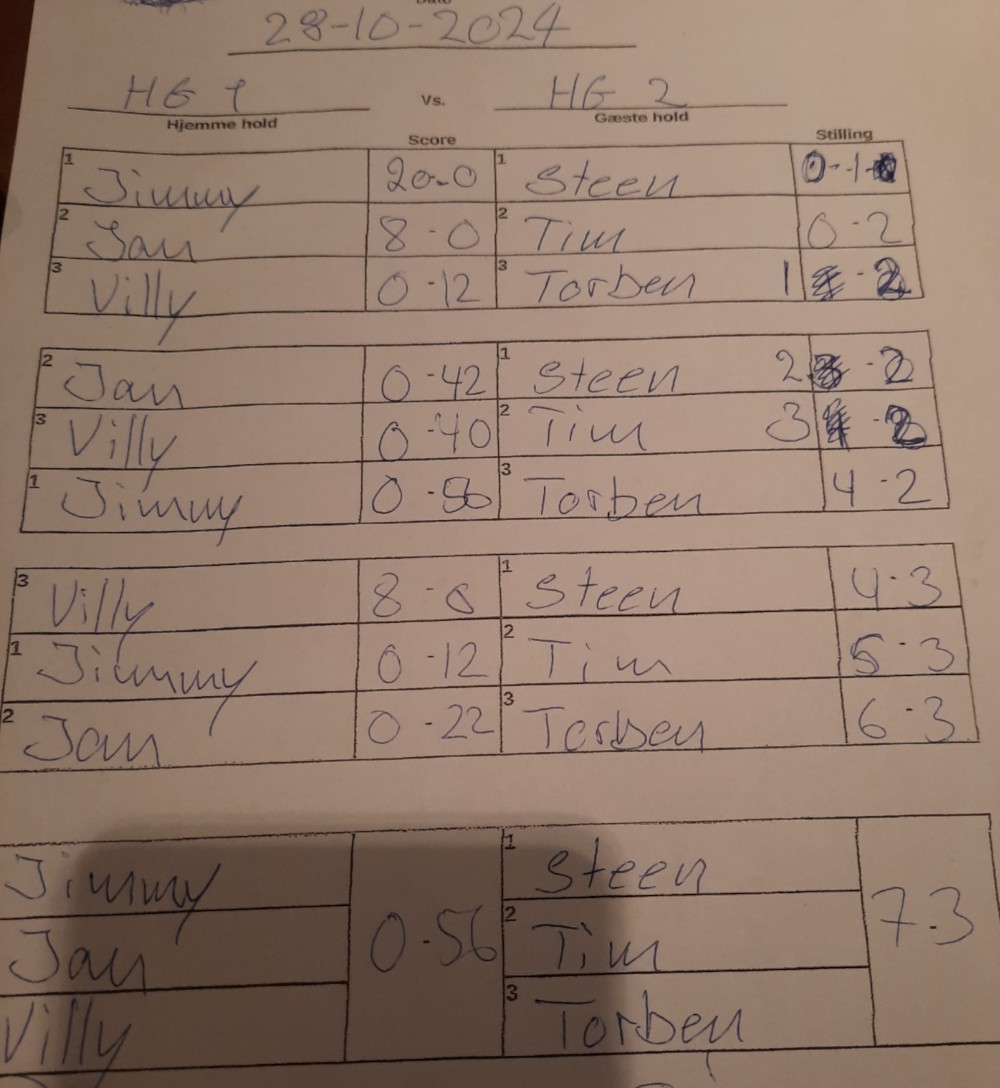 28-10-2024
HG 1 Vs. HG 2
Hjemme hold Gæste hold
Score Stilling
1 Jimmy 20-0 1 Steen 0-1
2 Jan 8-0 2 Tim 0-2
3 Villy 0-12 3 Torben 1 - 2
2 Jan 0-42 1 Steen 2 - 2
3 Villy 0-40 2 Tim 3 - 2
1 Jimmy 0-56 3 Torben 4-2
3 Villy 8-0 1 Steen 4-3
1 Jimmy 0-12 2 Tim 5-3
2 Jan 0-22 3 Torben 6-3
Jimmy 1 Steen
Jan 0-56 2 Tim 7-3
Villy 3 Torben